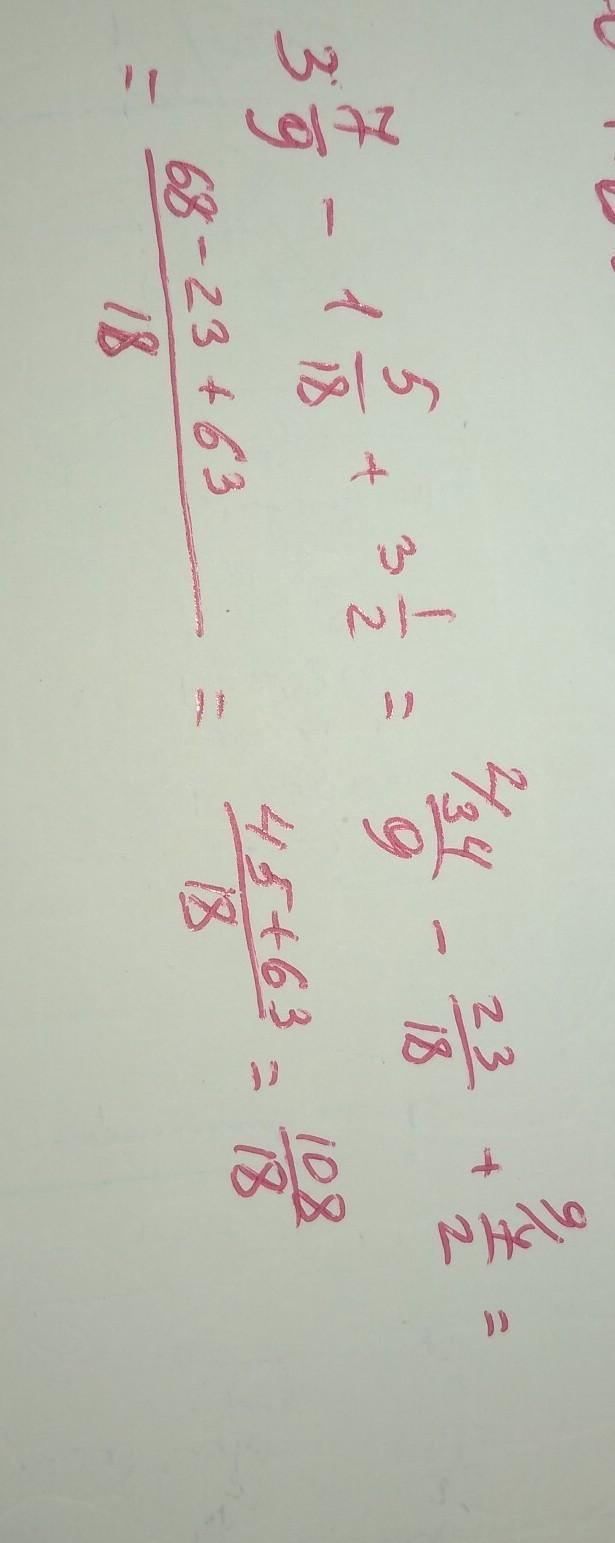 3 7/9 - 1 5/18 + 3 1/2 = 2/ 34/9 - 23/18 + 9/ 7/2 =
= (68 - 23 + 63)/18 = (45 + 63)/18 = 108/18